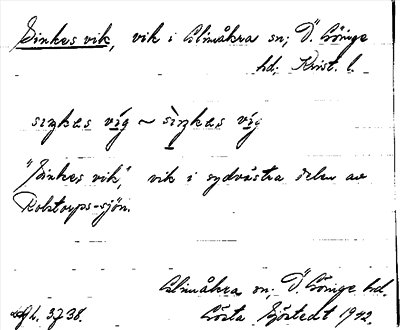 Sinkes vik, vik i Glimåkra sn; Ö. Göinge
hd; Krist. l.
siŋkes víg ~ sìŋkes víg
"Sinkes vik", vik i sydvästra delen av
Robtorps-sjön.
Glimåkra sn; Ö. Göinge hd.
Gösta Sjöstedt 1942.